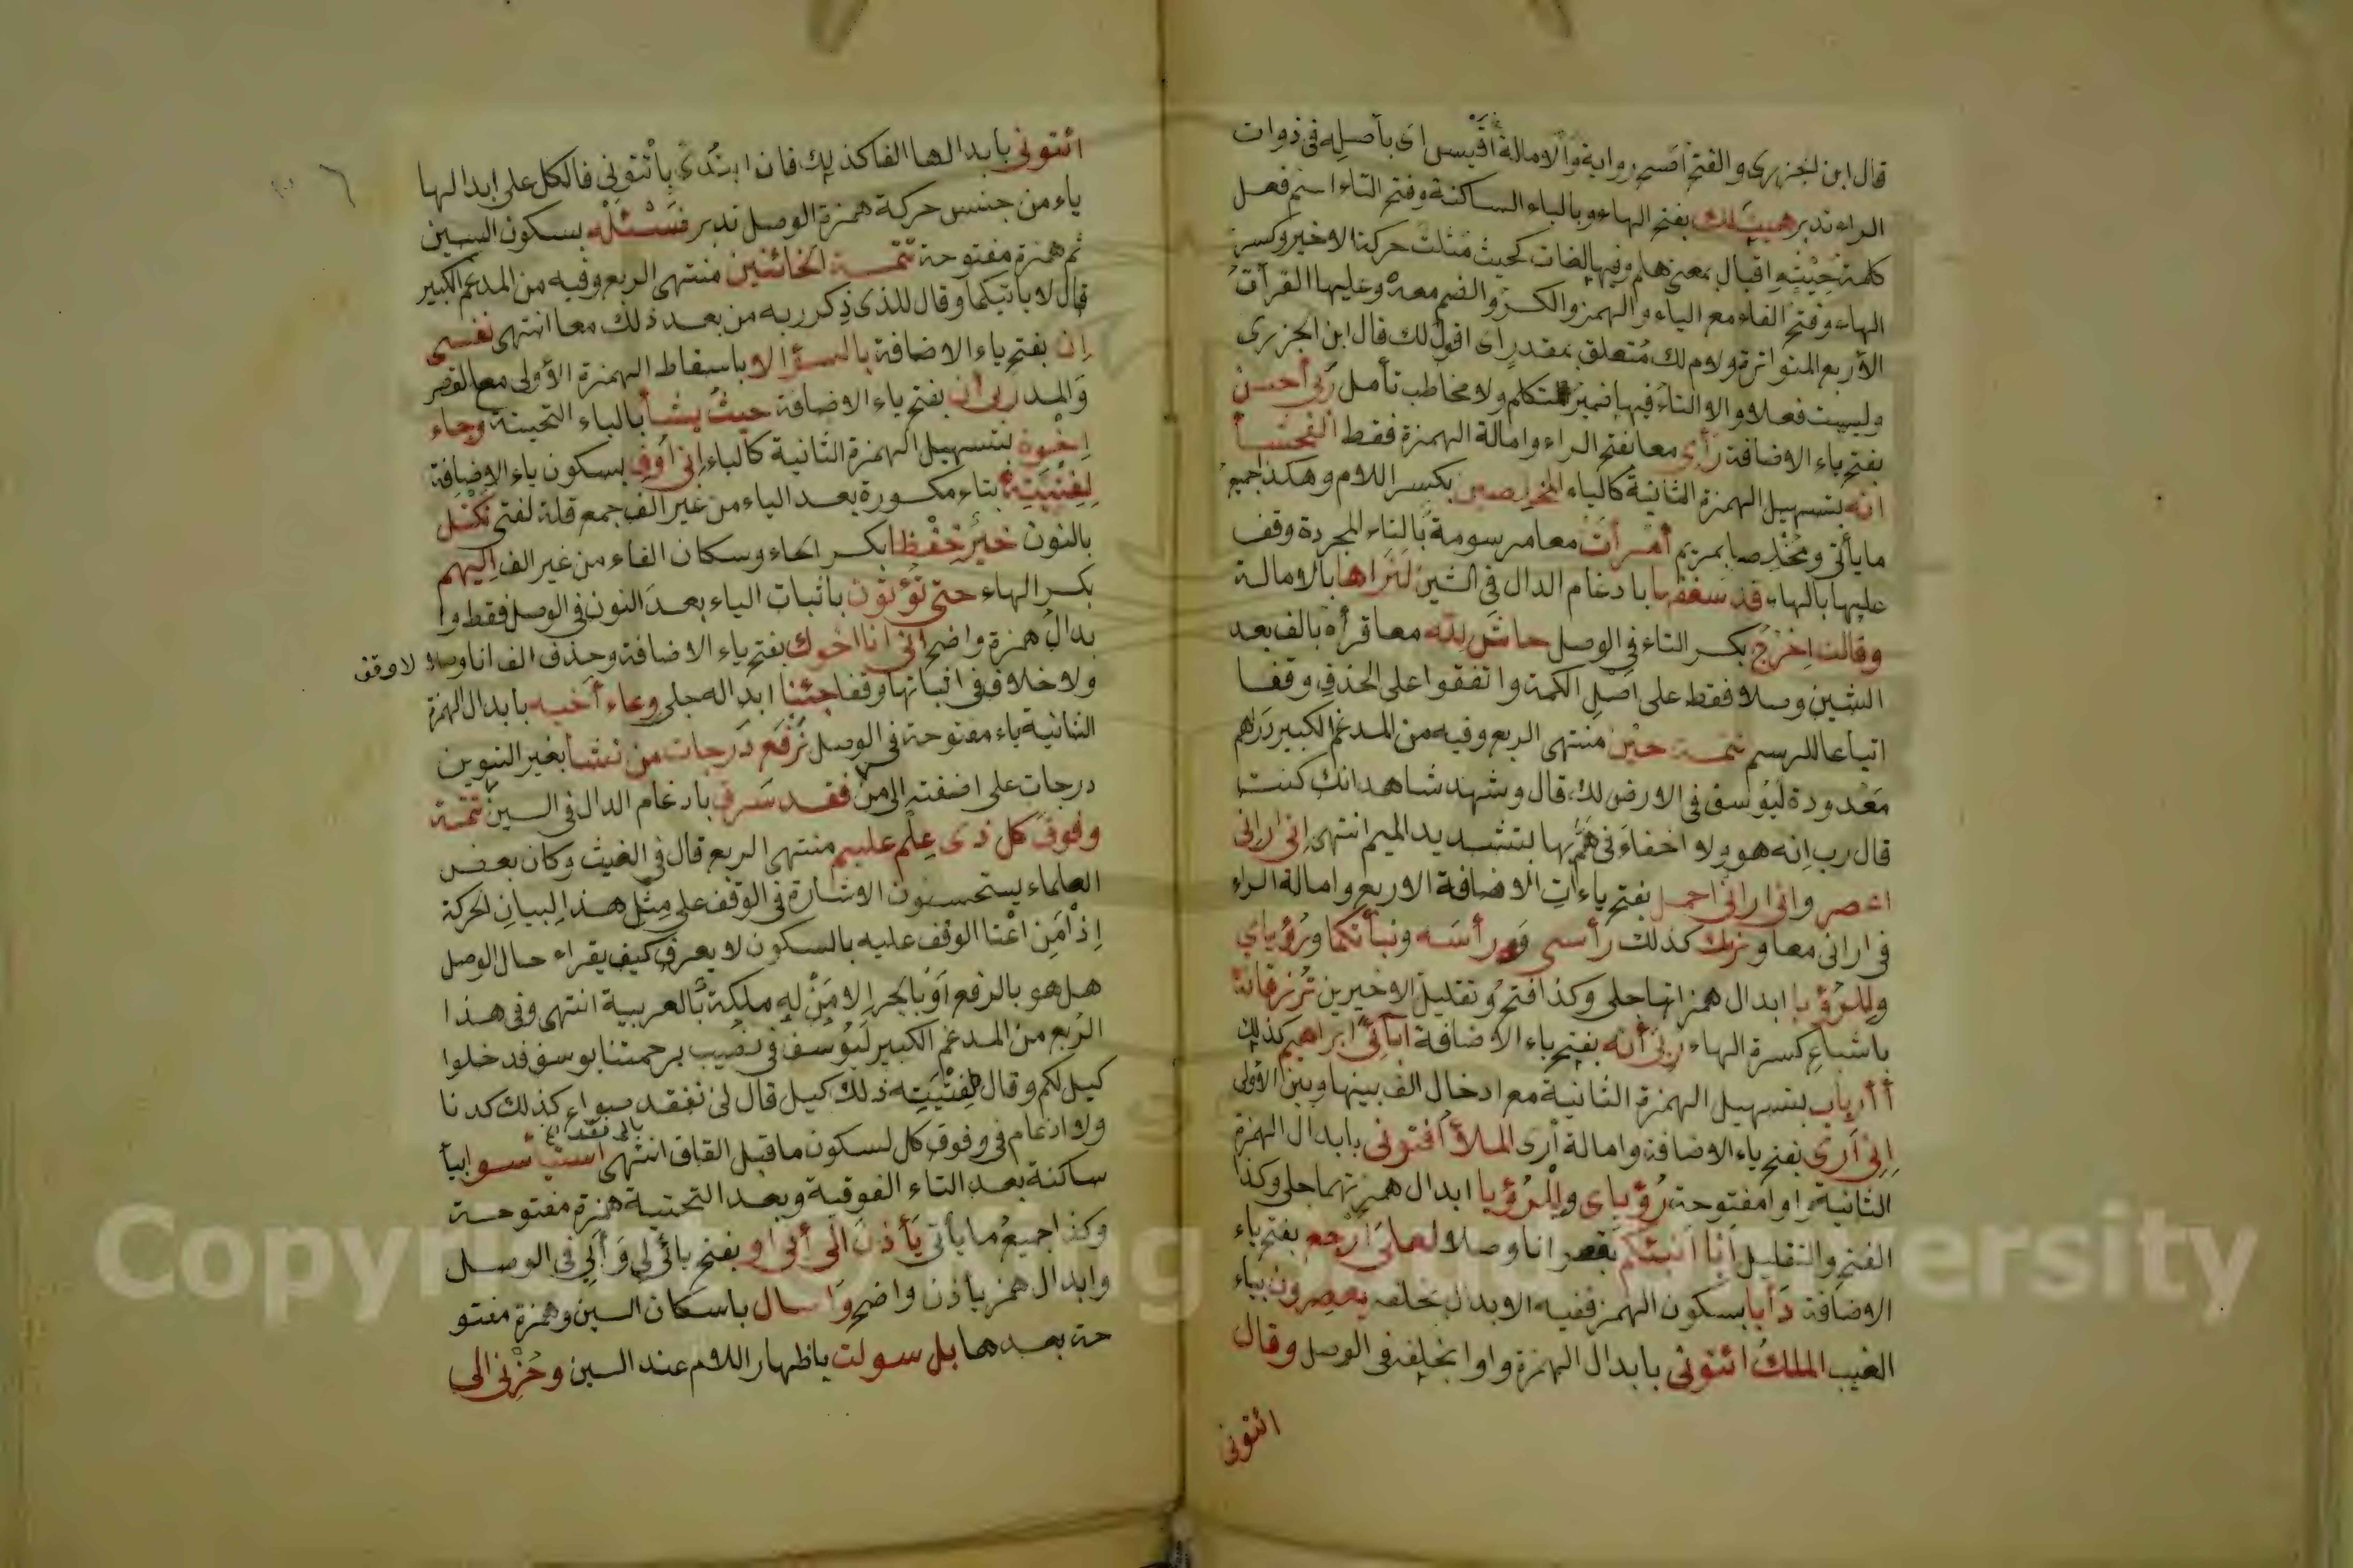 قال ابن الجزرى والفتح أصح رواية والامالة أقيس اى بأصله فى ذوات
الراء تدبر هيت لك بفتح الهاء وبالياء الساكنة وفتح التاء اسم فعل
كلمة حيث واقبال بمعنى هلم وفيها لغات كحيث مثلث حركة الاخير وكسر
الهاء وفتح التاء مع الياء والهمز والكسر والضم معه وعليها القرآت
الأربع المتواترة ولام لك متعلق بمقدر اى اقول لك قال ابن الجزرى
وليست فعلا ولا التاء فيها ضمير متكلم ولا مخاطب تأمل ربى أحسن
بفتح ياء الاضافة رأى معا بفتح الراء وامالة الهمزة فقط الفحشأ
انه بتسهيل الهمزة الثانية كالياء المخلصين بكسر اللام وهكذا جميع
ما يأتى ومخلصا بمريم أمرأت معا مرسومة بالتاء المجردة وقف
عليها بالهاء قد شغفها بادغام الدال فى الشين لنراها بالامالة
وقالت اخرج بكسر التاء فى الوصل حاش لله معا قرأه بالف بعد
الشين وصلا فقط على اصل الكلمة واتفقوا على الحذف وقفا
اتباعا للرسم تتمة حين منتهى الربع وفيه من المدغم الكبير دراهم
معدودة ليوسف فى الارض لك قال وشهد شاهد انك كنت
قال رب انه هو ولا اخفاء فى هم بها لتشديد الميم انتهى انى ارانى
اعصر وانى ارانى احمل بفتح ياءات الاضافة الاربع وامالة الراء
فى ارانى معا ونريك كذلك رأسى ورأسه ونبأتكما ورؤياي
وللرؤيا ابدال همزاتها جلى وكذا فتح وتقليل الاخيرين ترزقانه
باشباع كسرة الهاء ربى أنه بفتح ياء الاضافة آبائى ابراهيم كذلك
أأرباب بتسهيل الهمزة الثانية مع ادخال الف بينها وبين الأولى
إنى أرى بفتح ياء الاضافة وامالة أرى الملأ أفتونى بابدال الهمزة
الثانية واوا مفتوحة رؤياى وللرؤيا ابدال همزتهما جلى وكذا
الفتح والتقليل أنا أنبئكم بقصر انا وصلا لعلى أرجع بفتح ياء
الاضافة دأبا بسكون الهمز ففيه الابدال بخلفه يعصرون بياء
الغيب الملك ائتونى بابدال الهمزة واوا بخلفه فى الوصل وقال
ائتونى
ائتونى بابدالها الفا كذلك فان ابتدئ بأئتونى فالكل على ابدالها
ياء من جنس حركة همزة الوصل تدبر فسئله بسكون السين
ثم همزة مفتوحة تتمة الخائنين منتهى الربع وفيه من المدغم الكبير
قال لا يأتيكما وقال للذى ذكر ربه من بعد ذلك معا انتهى نفسى
ان بفتح ياء الاضافة بالسؤ الا باسقاط الهمزة الأولى مع القصر
والمد ربى ان بفتح ياء الاضافة حيث يشأ بالياء التحيتة وجاء
اخوة بتسهيل الهمزة الثانية كالياء إنى أوف بسكون ياء الاضافة
لفتيته بتاء مكسورة بعد الياء من غير الف جمع قلة لفتى نكتل
بالنون خير حفظا بكسر الحاء وسكان الفاء من غير الف اليهم
بكسر الهاء حتى تؤتون باثبات الياء بعد النون فى الوصل فقط وا
بدال همزة واضح انى انا اخوك بفتح ياء الاضافة وحذف الف انا وصلا لا وقف
ولا خلاف فى اثباتها وقفا جئنا ابداله جلى وعاء أخيه بابدال الهمزة
الثانية ياء مفتوحة فى الوصل نرفع درجات من نشأ بغير التنوين
درجات على اضفته الى من فقد سرق بادغام الدال فى السين تتمة
وفوق كل ذى علم عليم منتهى الربع قال فى الغيث وكان بعض
العلماء يستحسنون الاشارة فى الوقف على مثل هذا لبيان لحركة
إذ أمن اعتا الوقف عليه بالسكون لا يعرف كيف يقراء حال الوصل
هل هو بالرفع أو بالجر إلا من له ملكة بالعربية انتهى وفى هذا
الربع من المدغم الكبير ليوسف فى نصيب برحمتنا يوسف فدخلوا
كيل لكم وقال لفتيته ذلك كيل قال لن نفقد صواع كذلك كدنا
ولا ادغام فى وفوق كل لسكون ما قبل القاف انتهى استيأسوا بيأ
ساكنة بعد التاء الفوقية وبعد التحتية همزة مفتوحة
وكذا جميع ما يأتى يأذن لى أبى او بفتح يائى لى وأبى فى الوصل
وابدال همز يأذن واضح واسال باسكان السين وهمزة مفتو
حة بعدها بل سولت باظهار اللام عند السين وحزنى الى
Copyright © King Saud University